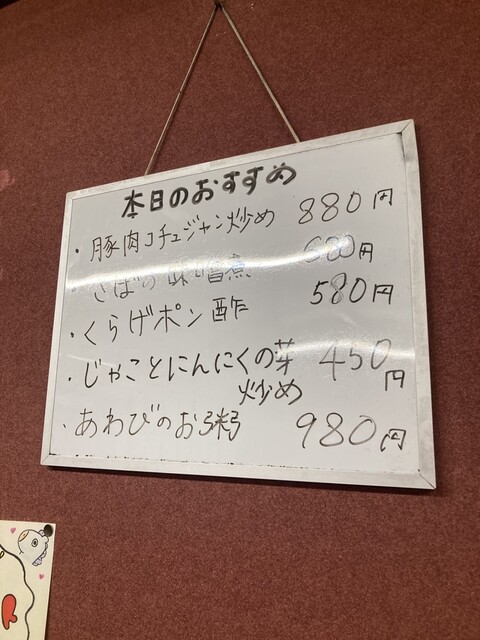 本日のおすすめ
・豚肉コチュジャン炒め 880円
さばの味噌煮 680円
・くらげポン酢 580円
・じゃことにんにくの芽 450円
炒め
・あわびのお粥 980円